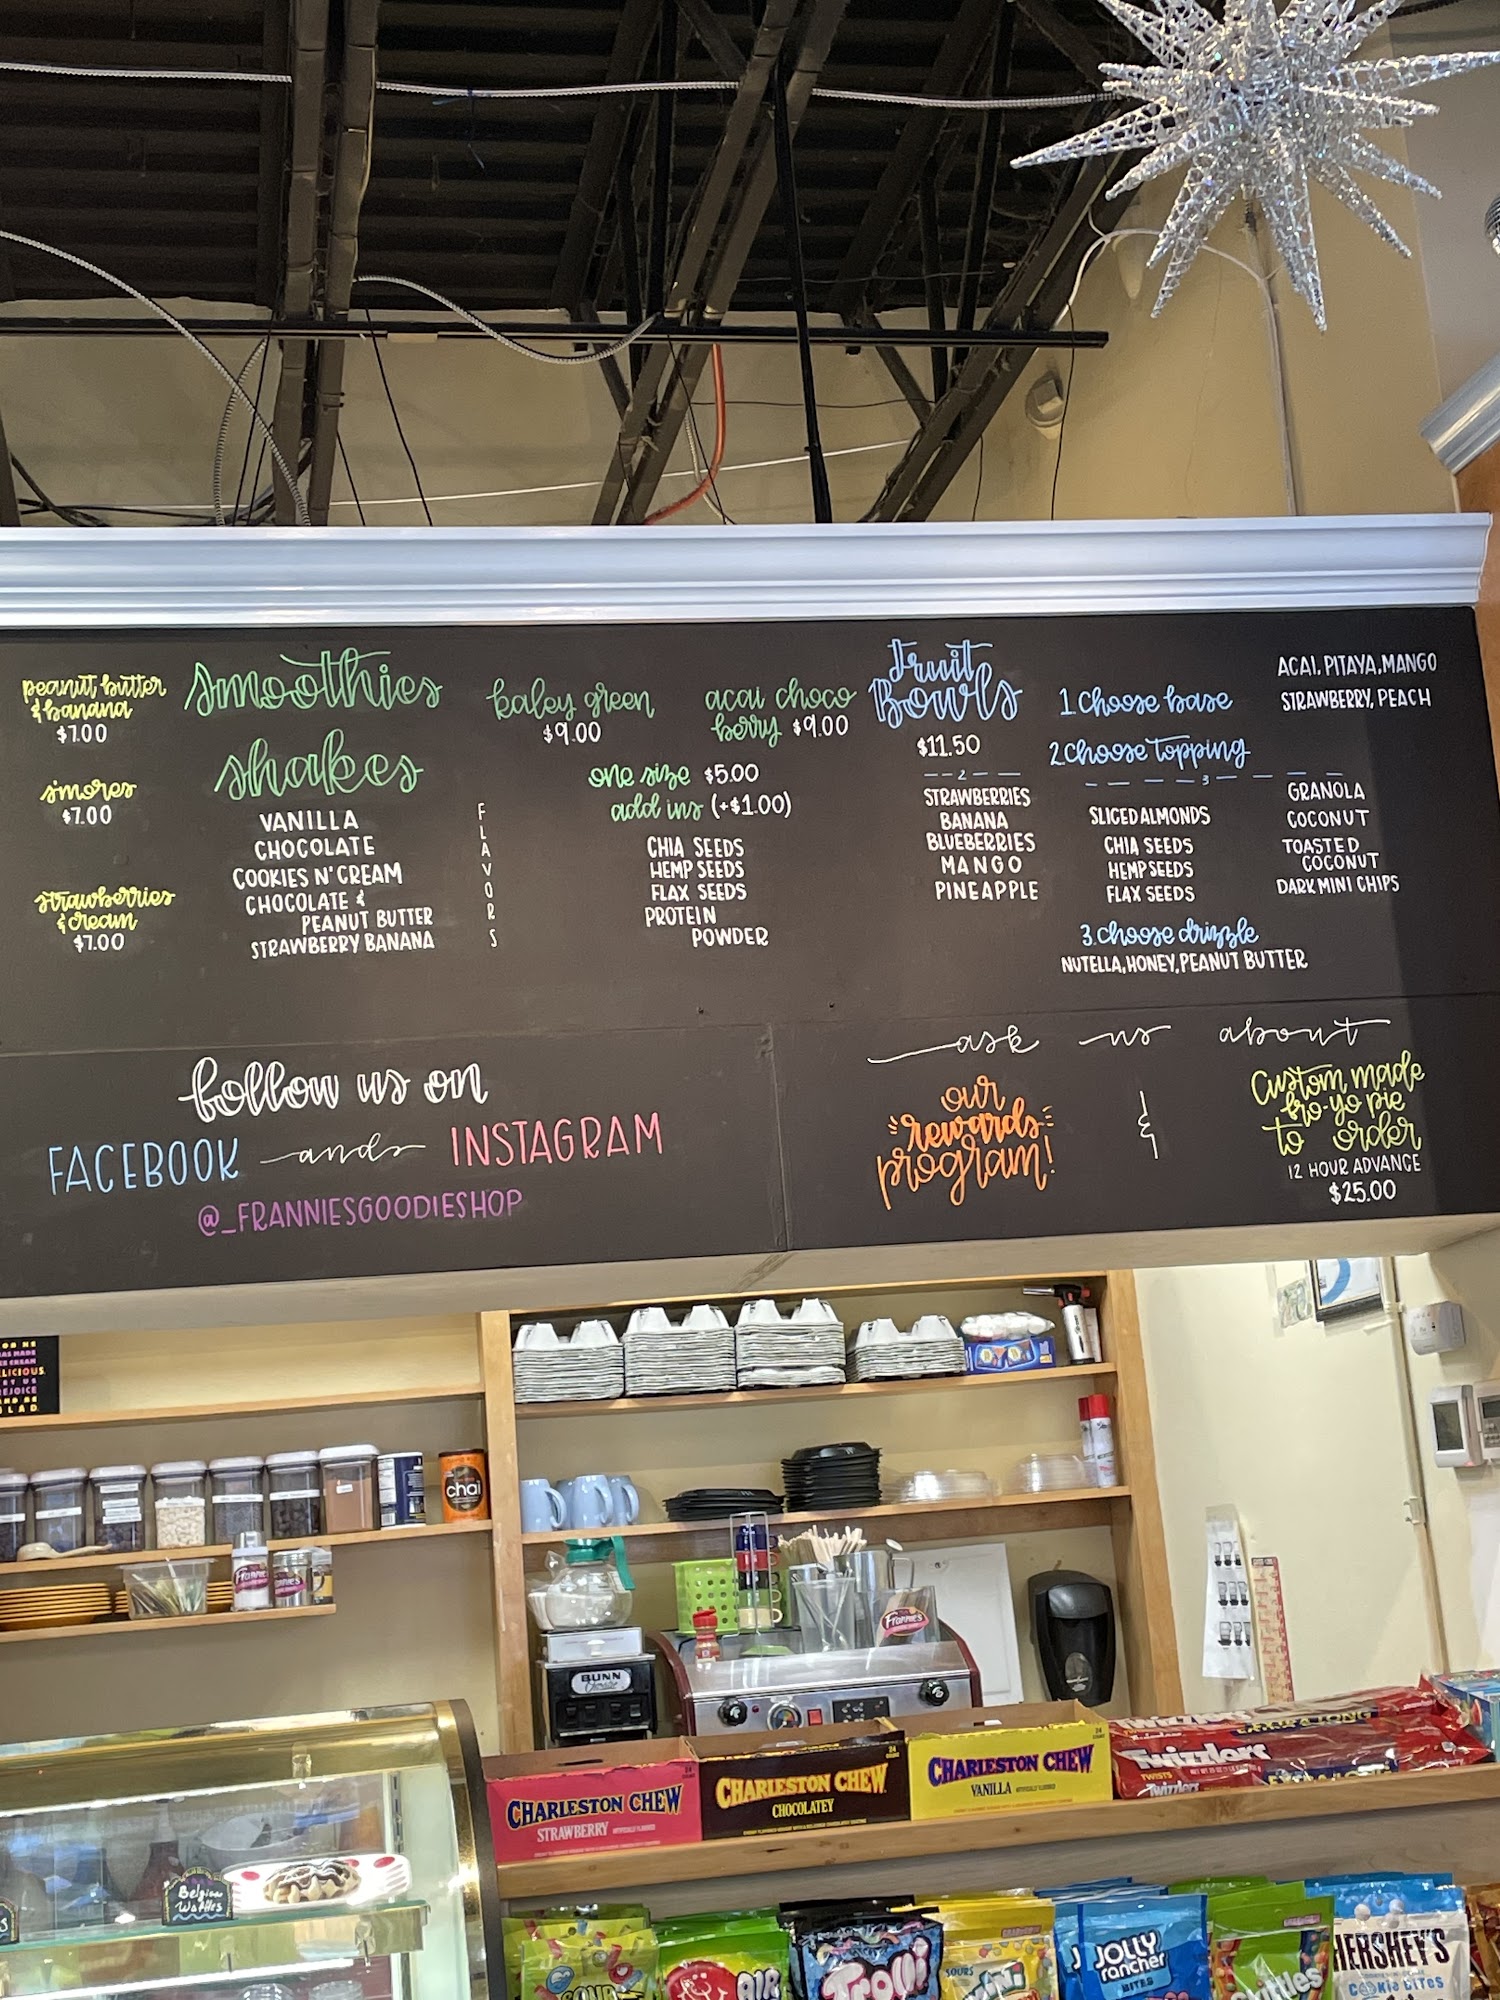 peanut butter
& banana
$7.00
s'mores
$7.00
strawberries
& cream
$7.00
smoothies
shakes
VANILLA
CHOCOLATE
COOKIES N' CREAM
CHOCOLATE &
PEANUT BUTTER
STRAWBERRY BANANA
FLAVORS
kaley green
$9.00
acai choco
berry $9.00
one size $5.00
add ins (+$1.00)
CHIA SEEDS
HEMP SEEDS
FLAX SEEDS
PROTEIN
POWDER
fruit
Bowls
$11.50
2
STRAWBERRIES
BANANA
BLUEBERRIES
MANGO
PINEAPPLE
1. Choose base
ACAI, PITAYA, MANGO
STRAWBERRY, PEACH
2 Choose topping
3
SLICED ALMONDS
CHIA SEEDS
HEMP SEEDS
FLAX SEEDS
GRANOLA
COCONUT
TOASTED
COCONUT
DARK MINI CHIPS
3. Choose drizzle
NUTELLA, HONEY, PEANUT BUTTER
follow us on
FACEBOOK and INSTAGRAM
@_FRANNIESGOODIESHOP
ask us about
our
rewards
program!
&
Custom made
fro-yo pie
to order
12 HOUR ADVANCE
$25.00
chai
Frannie's
BUNN
CHARLESTON CHEW
STRAWBERRY
CHARLESTON CHEW
CHOCOLATEY
CHARLESTON CHEW
VANILLA
Twizzlers
TWISTS
Twizzlers
Belgian
Waffles
AIR
Trolli
JOLLY
rancher
BITES
Skittles
HERSHEY'S
COOKIE BITES